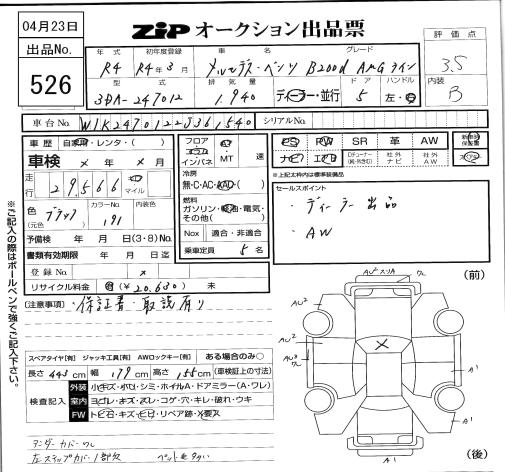 04月23日
ZiP オークション出品票
評価点
3.5
内装
B
出品No.
526
年式 初年度登録 車名 グレード
R4 R4年3月 メルセデス・ベンツ B200d AMGライン
型式 排気量 ドア ハンドル
3DA-247012 1.940 ディーラー・並行 5 左・右
車台No. W1K2470122J361540 シリアルNo.
車歴 自家用・レンタ・( )
車検 × 年 × 月
走行 29,566 Km マイル
色 (元色) ブラック カラーNo. 191 内装色
予備検 年 月 日(3・8)No.
書類有効期限 年 月 日迄
登録No. ×
リサイクル料金 済 (¥20,680) 未
フロア コラム インパネ AT MT 速
冷房 無・C・AC・AAC・( )
燃料 ガソリン・軽油・電気・その他( )
Nox 適合・非適合
乗車定員 5 名
PS PW SR 革 AW
ナビ エアB Dチューナー(純・外防) 社外ナビ 社外AW
新車時保証書
※上記太枠内は標準装備品
セールスポイント
・ディーラー出品
・AW
(注意事項)・保証書・取説有り
スペアタイヤ[有] ジャッキ工具[有] AWロックキー[有] ある場合のみ○
長さ 443cm 幅 179cm 高さ 155cm (車検証上の寸法)
検査記入
外装 小キズ・小凹・シミ・ホイルA・ドアミラー(A・ワレ)
室内 ヨゴレ・キズ・スレ・コゲ・穴・キレ・破れ・ウキ
FW トビ石・キズ・ヒビ・リペア跡・X要交
アンダーカバーワレ
左ステップカバー1部欠 ペット毛多い
※ご記入の際はボールペンで強くご記入下さい。
(前)
AU² スリA ワレ
AU²
AU²
AU³ ワレ
×
A¹
A¹
(後)